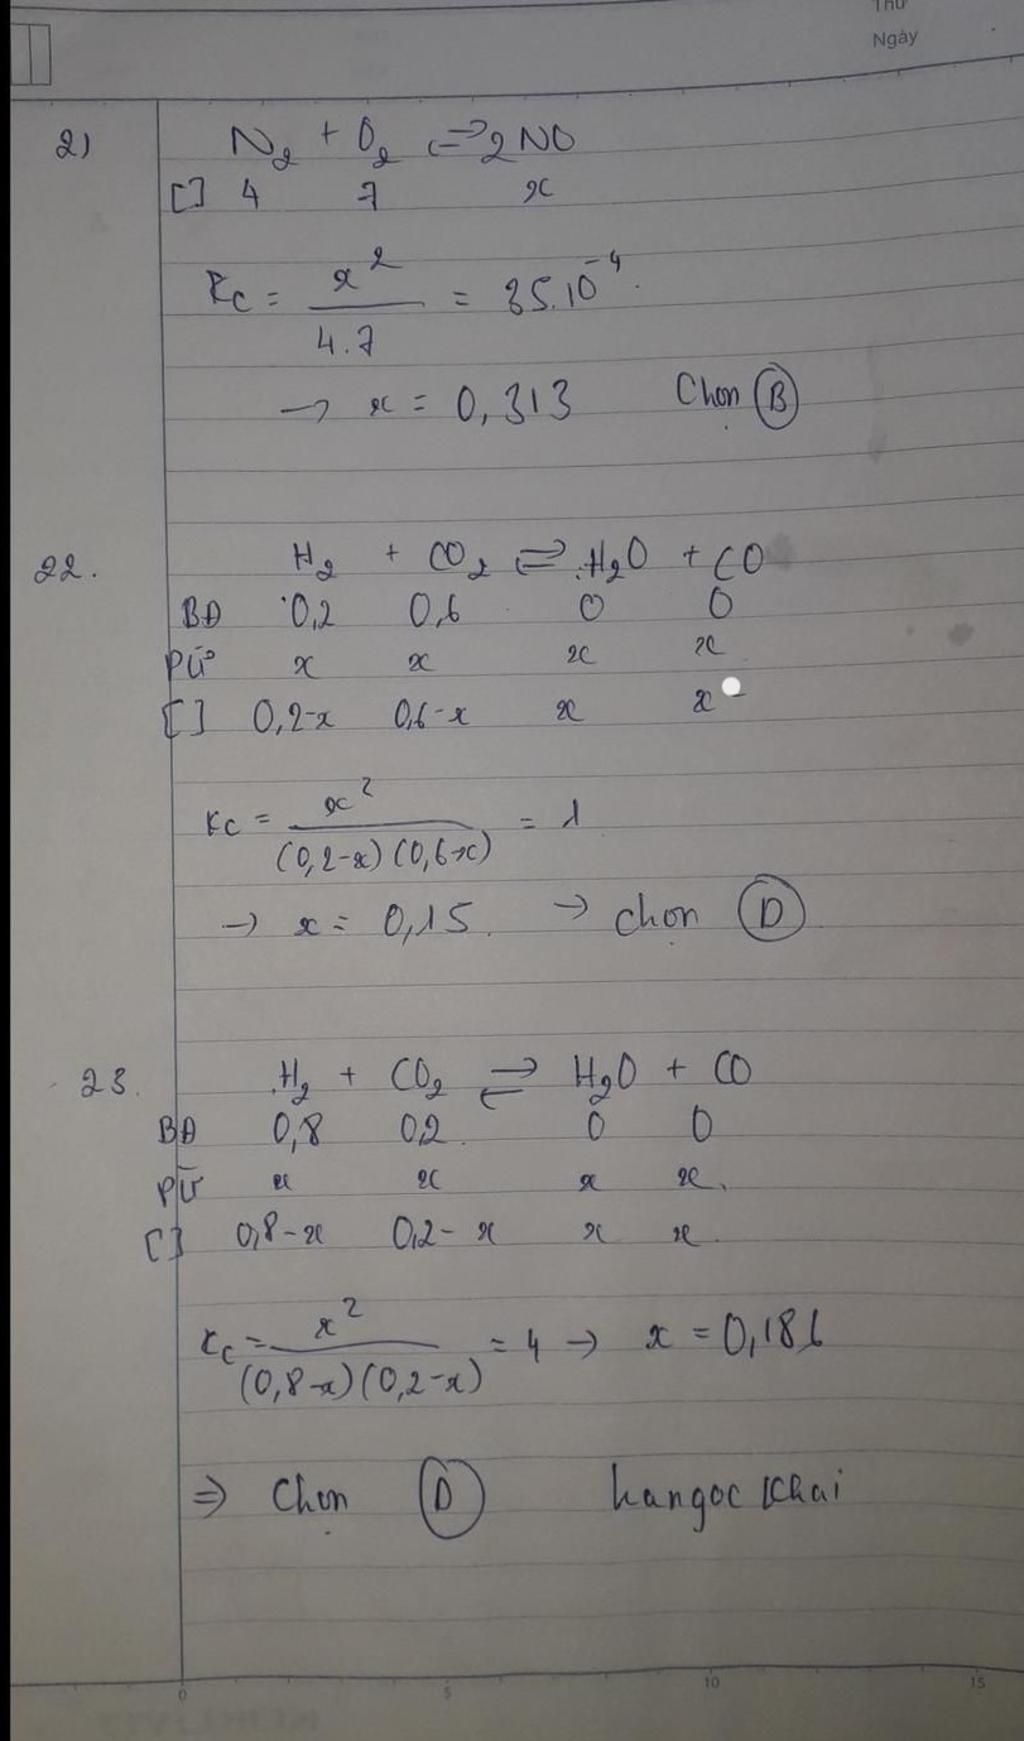 Thứ
Ngày
21 N₂ + O₂ ⇌ 2NO
[] 4 7 x
Kc = x² / 4.7 = 35.10⁻⁴.
→ x = 0,313 Chọn B
22. H₂ + CO₂ ⇌ H₂O + CO
BĐ 0,2 0,6 0 0
PƯ x x x x
[] 0,2-x 0,6-x x x
Kc = x² / (0,2-x)(0,6-x) = 1
→ x = 0,15. → chọn D
23. H₂ + CO₂ ⇌ H₂O + CO
BĐ 0,8 0,2 0 0
PƯ x x x x.
[] 0,8-x 0,2-x x x.
Kc = x² / (0,8-x)(0,2-x) = 4 → x = 0,186
⇒ Chọn D hangoc Khai
0 5 10 15